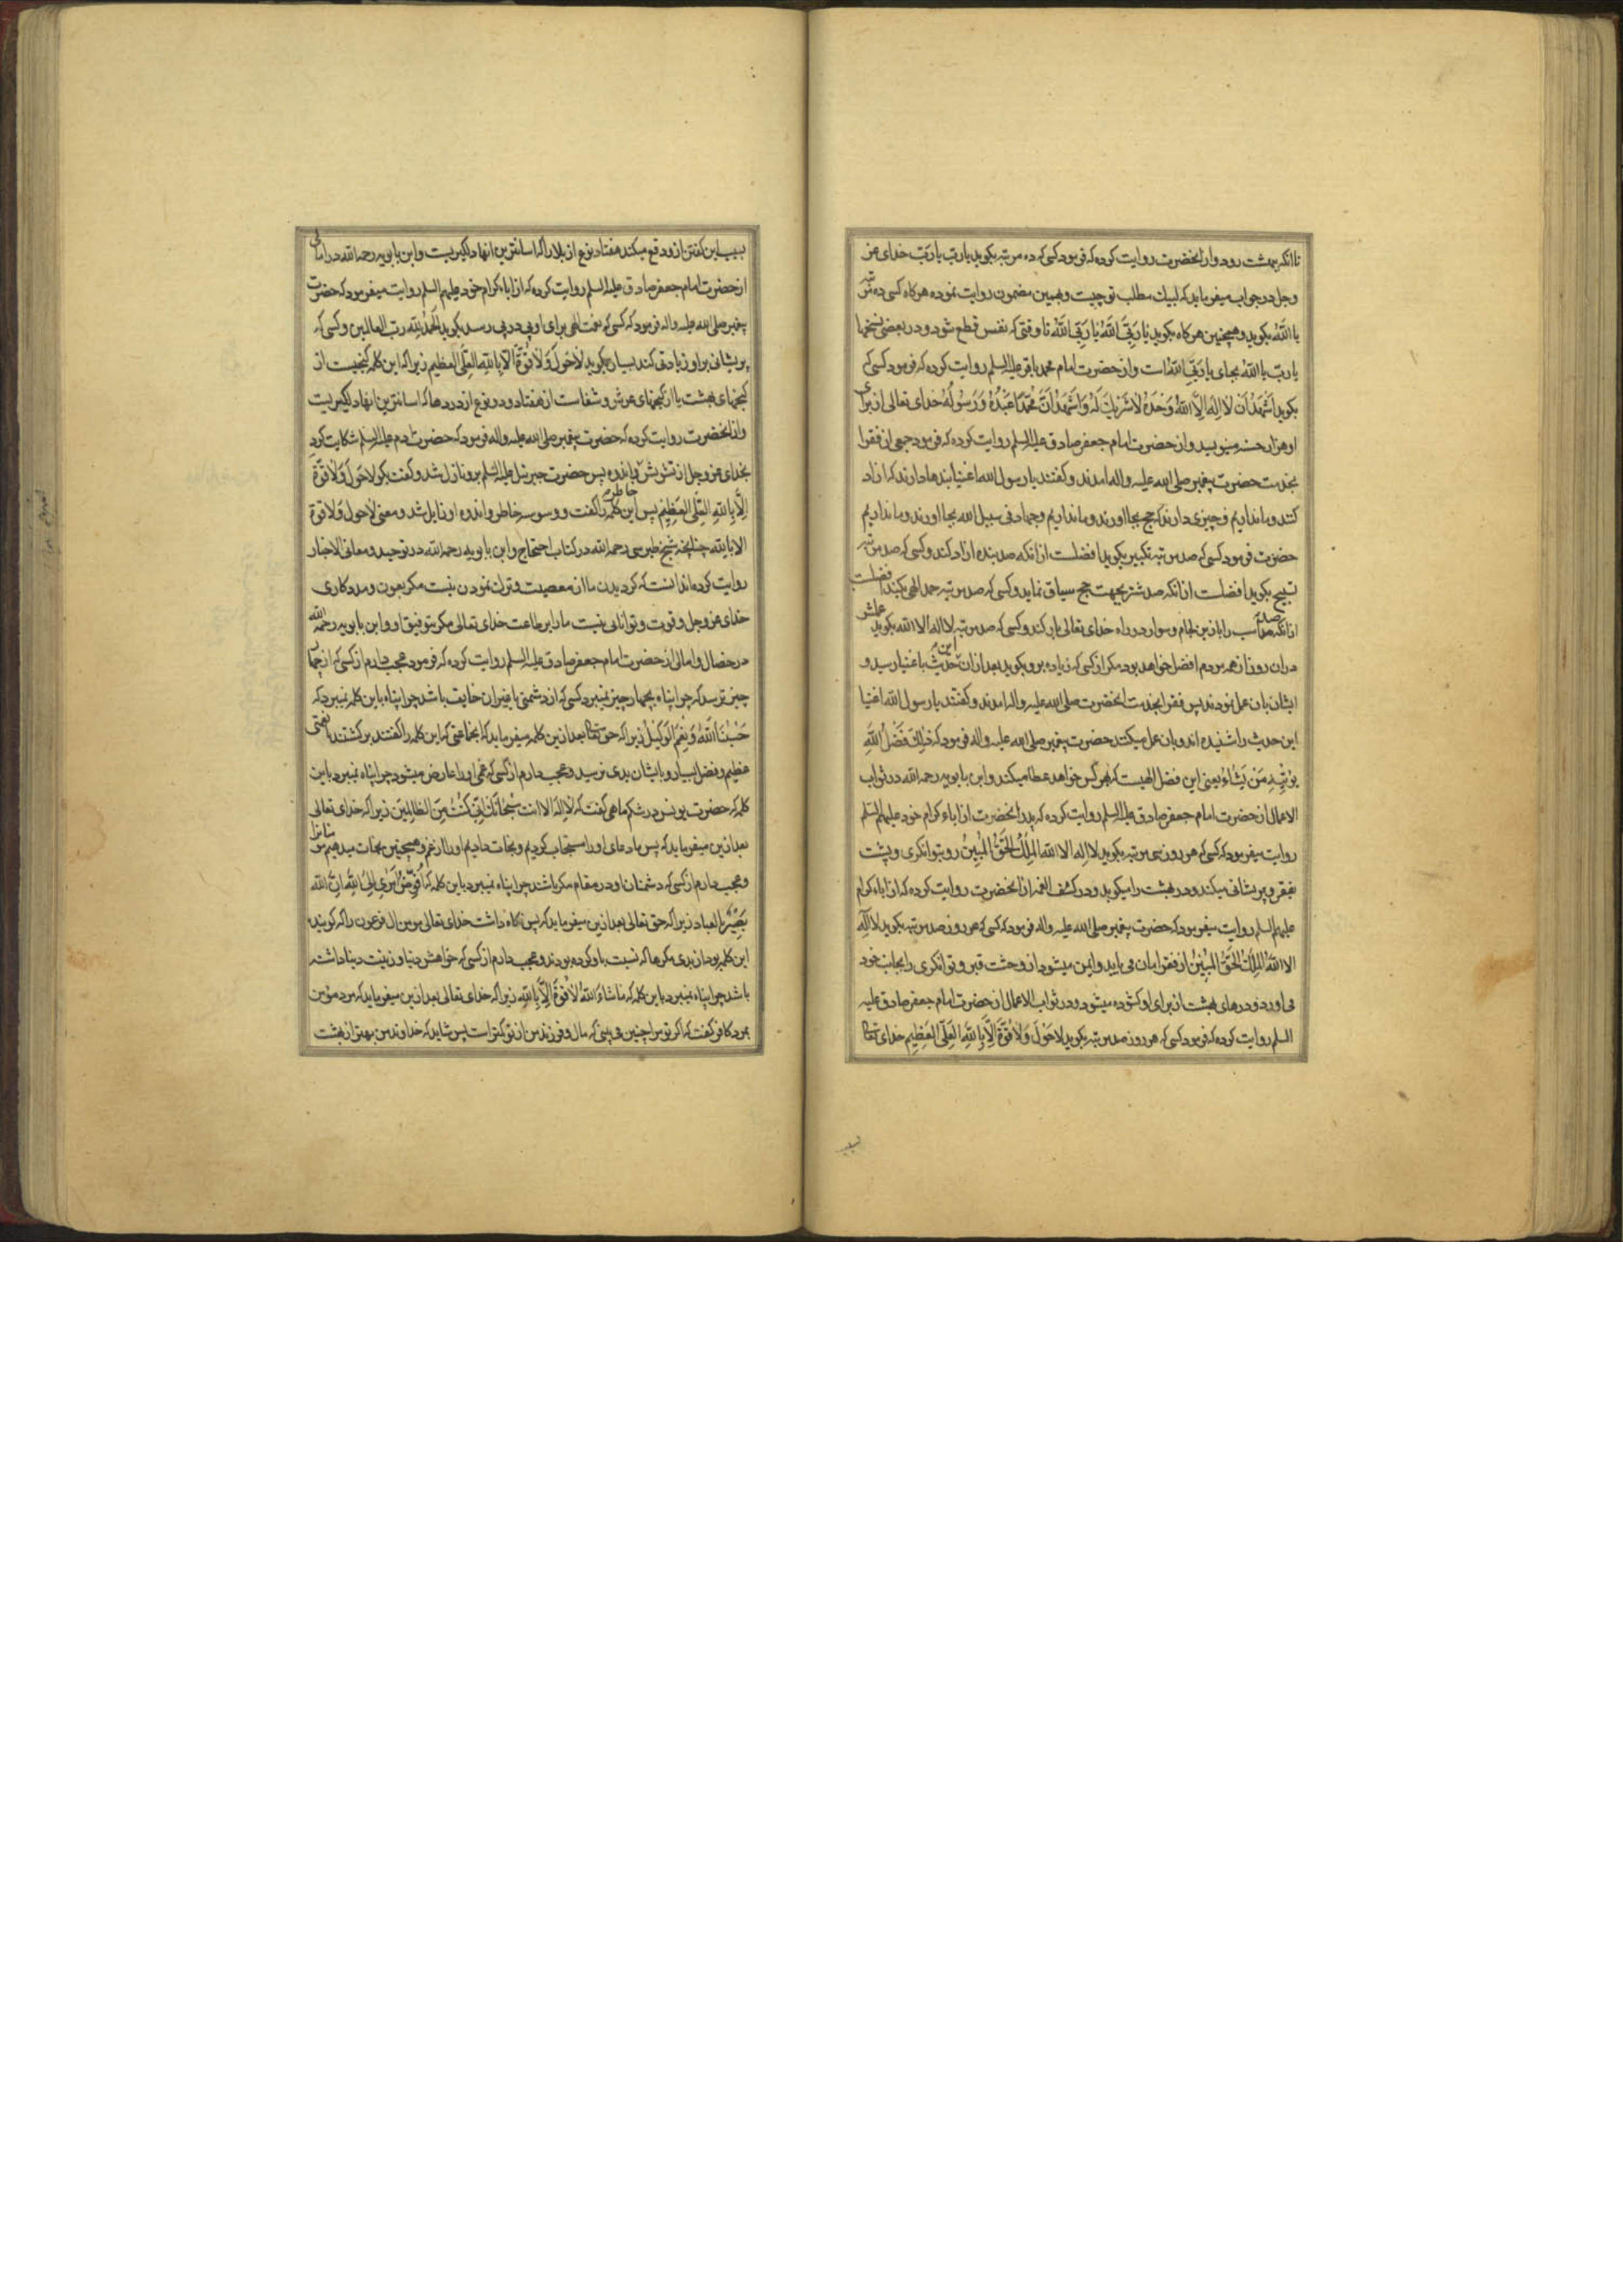 تا انکه ببهشت رود و از انحضرت روایت کرده که فرمود کسی که ده مرتبه بکوید یا ربّ یا ربّ خدای عز
و جل در جواب میفرماید که لبیك مطلب تو چیست و بهمین مضمون روایت نموده هرکاه کسی ده مرتبه
یا اللّهُ بکوید و همچنین هرکاه بکوید یا رَبِّیَ اللّهُ یا رَبِّیَ اللّهُ تا وقتی که نفس قطع شود و در بعضی نسخها
یا ربّ یا اللّهُ بجای یا رَبِّیَ اللّهُ است و از حضرت امام محمد باقر علیه السلم روایت کرده که فرمود کسی که
بکوید اَشْهَدُ اَن لا اِلٰهَ اِلَّا اللّهُ وَحْدَهُ لاٰ شَرٖیكَ لَهُ وَ اَشْهَدُ اَنَّ مُحَمَّدًا عَبْدُهُ وَ رَسُولُهُ خدای تعالی از برای
او هزار حسنه مینویسد و از حضرت امام جعفر صادق علیه السلم روایت کرده که فرمود جمعی از فقرا
بخدمت حضرت پیغمبر صلی الله علیه و اله امدند و کفتند یا رسول الله اغنیا بندها دارند که ازاد
کنند و ما نداریم و چیزی دارند که حج بجا اورند و ما نداریم و جهاد فی سبیل الله بجا اورند و ما نداریم
حضرت فرمود کسی که صد مرتبه تکبیر بکوید افضلست از انکه صد بنده ازاد کند و کسی که صد مرتبه
تسبیح بکوید افضلست از انکه صد شتر بجهت حج سیاق نماید و کسی که صد مرتبه حمد الهی بکند افضلست
از انکه صد اسب را با زین و لجام و سوار در راه خدای تعالی بار کند و کسی که صد مرتبه لا اله الا الله بکوید عملش
در ان روز از همه مردم افضل خواهد بود مکر از کسی که زیاده برو بکوید بعد از ان این حدیث باغنیا رسید و
ایشان بان عمل نمودند پس فقرا بخدمت انحضرت صلی الله علیه و اله امدند و کفتند یا رسول الله اغنیا
این حدیث را شنیده اند و بان عمل میکنند حضرت پیغمبر صلی الله علیه و اله فرمود که ذٰلِكَ فَضْلُ اللّهِ
یُؤْتٖیهِ مَنْ یَشٰاءُ یعنی این فضل الهیست که بهر کس خواهد عطا میکند و ابن بابویه رحمه الله در ثواب
الاعمال از حضرت امام جعفر صادق علیه السلم روایت کرده که پدر انحضرت از اباء کرام خود علیهم السلم
روایت میفرمود که کسی که هر روز سی مرتبه بکوید لا اله الا الله المَلِكُ الْحَقُّ الْمُبٖینُ رو بتوانکری و پشت
بفقر و پریشانی میکند و در بهشت را میکوبد و در کشف الغمه از انحضرت روایت کرده که از اباء کرام
علیهم السلم روایت میفرمود که حضرت پیغمبر صلی الله علیه و اله فرمود که کسی که هر روز صد مرتبه بکوید لا اله
الا اللّهُ الْمَلِكُ الْحَقُّ الْمُبٖینُ از فقر امان می یابد و ایمن میشود از وحشت قبر و توانکری را بجانب خود
می اورد و درهای بهشت از برای او کشوده میشود و در ثواب الاعمال از حضرت امام جعفر صادق علیه
السلم روایت کرده که فرمود کسی که هر روز صد مرتبه بکوید لا حَوْلَ وَلاٰ قُوَّةَ اِلّاٰ بِاللّهِ الْعَلِیِّ الْعَظٖیمِ خدای تعالی
بسبب
بسبب این کفتن از و دفع میکند هفتاد نوع از بلا را که اسانترین انها دلکیریست و ابن بابویه رحمه الله در امالی
از حضرت امام جعفر صادق علیه السلم روایت کرده که از اباء کرام خود علیهم السلم روایت میفرمود که حضرت
پیغمبر صلی الله علیه و اله فرمود که کسی که نعمت الهی برای او پی در پی رسد بکوید اَلْحَمْدُ لِلّهِ ربّ العالمین و کسی که
پریشانی بر او زیادتی کند بسیار بکوید لاٰ حَوْلَ وَلاٰ قُوَّةَ اِلّاٰ بِاللّهِ الْعَلِیِّ الْعَظٖیمِ زیرا که این کلمه کنجیست از
کنجهای بهشت یا از کنجهای عرش و شفاست از هفتاد و دو نوع از دردها که اسانترین انها دلکیریست
و از انحضرت روایت کرده که حضرت پیغمبر صلی الله علیه و اله فرمود که حضرت ادم علیه السلم شکایت کرد
بخدای عز و جل از تشویش خاطر و اندوه پس حضرت جبرئیل علیه السلم برو نازل شد و کفت بکو لا حَوْلَ وَلاٰ قُوَّةَ
اِلّاٰ بِاللّهِ الْعَلِیِّ الْعَظٖیمِ پس این کلمه را کفت و وسوسه خاطر و اندوه او زایل شد و معنی لا حول ولا قوة
الا بالله چنانچه شیخ طبرسی رحمه الله در کتاب احتجاج و ابن بابویه رحمه الله در توحید و معانی الاخبار
روایت کرده اند انست که کردیدن ما از معصیت و ترك نمودن نیست مکر بعون و مددکاری
خدای عز و جل و قوت و توانائی نیست ما را بر طاعت خدای تعالی مکر بتوفیق او و ابن بابویه رحمه الله
در خصال و امالی از حضرت امام جعفر صادق علیه السلم روایت کرده که فرمود عجب دارم از کسی که از چهار
چیز ترسد که چرا پناه بچهار چیز نمیبرد کسی که از دشمنی یا غیر ان خایف باشد چرا پناه باین کلمه نمیبرد که
حَسْبُنَا اللّهُ وَ نِعْمَ الْوَکٖیلُ زیرا که حق تعالی بعد ازین کلمه میفرماید که انجماعتی که این کلمه را کفتند برکشتند بنعمتی
عظیم و فضل بسیار و بایشان بدی نرسید و عجب دارم از کسی که غمی او را عارض میشود چرا پناه نمیبرد باین
کلمه که حضرت یونس در شکم ماهی کفت که لاٰ اِلٰهَ الا انت سُبْحٰانَكَ اِنّٖی کُنْتُ مِنَ الظّٰالِمٖینَ زیرا که خدای تعالی
بعد ازین میفرماید که پس ما دعای او را مستجاب کردیم و نجات دادیم او را از غم و همچنین نجات میدهیم مؤمنانرا
و عجب دارم از کسی که دشمنان او در مقام مکر باشند چرا پناه نمیبرد باین کلمه که اُفَوِّضُ اَمْرٖی اِلَی اللّهِ اِنَّ اللّه
بَصٖیرٌ بالعباد زیرا که حق تعالی بعد ازین میفرماید که پس نکاه داشت خدای تعالی مومن ال فرعون را که کوینده
این کلمه بود از بدی مکرها که نسبت باو کرده بودند و عجب دارم از کسی که خواهش دنیا و زینت دنیا داشته
باشد چرا پناه نمیبرد باین کلمه که مٰا شٰاءَ اللّهُ لاٰ قُوَّةَ اِلّاٰ بِاللّهِ زیرا که خدای تعالی بعد ازین میفرماید که مرد مؤمن
بمرد کافر کفت که اکر تو مرا چنین می بینی که مال و فرزند من از تو کمتر است پس شاید که خداوند من بهتر از بهشت